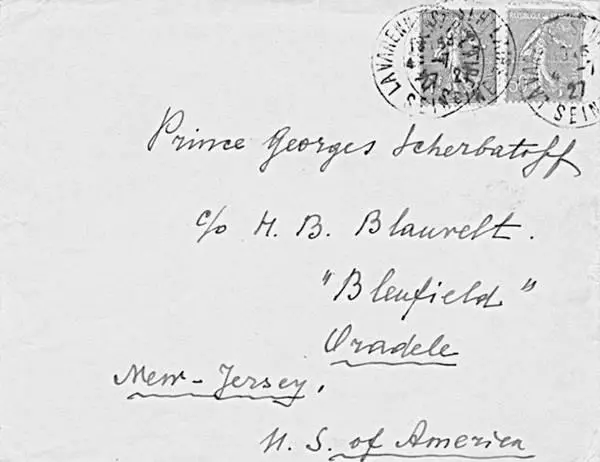 LA VARENNE-ST
SEINE
27
Prince Georges Scherbatoff
c/o H. B. Blauvelt.
"Bleufield"
Oradele
New-Jersey,
U. S. of America